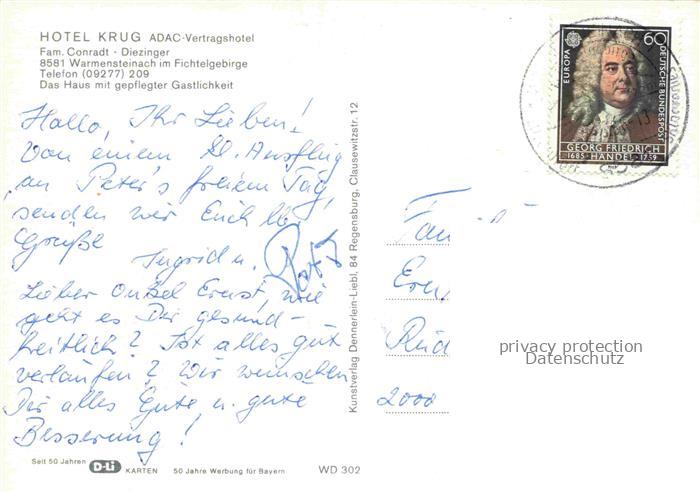 HOTEL KRUG ADAC-Vertragshotel
Fam. Conradt · Diezinger
8581 Warmensteinach im Fichtelgebirge
Telefon (09277) 209
Das Haus mit gepflegter Gastlichkeit
Hallo, Ihr Lieben!
Von einem kl. Ausflug
an Peter's freiem Tag,
senden wir Euch lb.
Grüße
Ingrid u. Peter
Lieber Onkel Ernst, wie
geht es Dir gesund-
heitlich? Ist alles gut
verlaufen? Wir wünschen
Dir alles Gute u. gute
Besserung!
Seit 50 Jahren D-Li KARTEN 50 Jahre Werbung für Bayern WD 302
Kunstverlag Dennerlein-Liebl, 84 Regensburg, Clausewitzstr. 12
EUROPA
60
DEUTSCHE BUNDESPOST
GEORG FRIEDRICH
1685 · HÄNDEL · 1759
Fam
Ern
Rüd
2000
privacy protection
Datenschutz